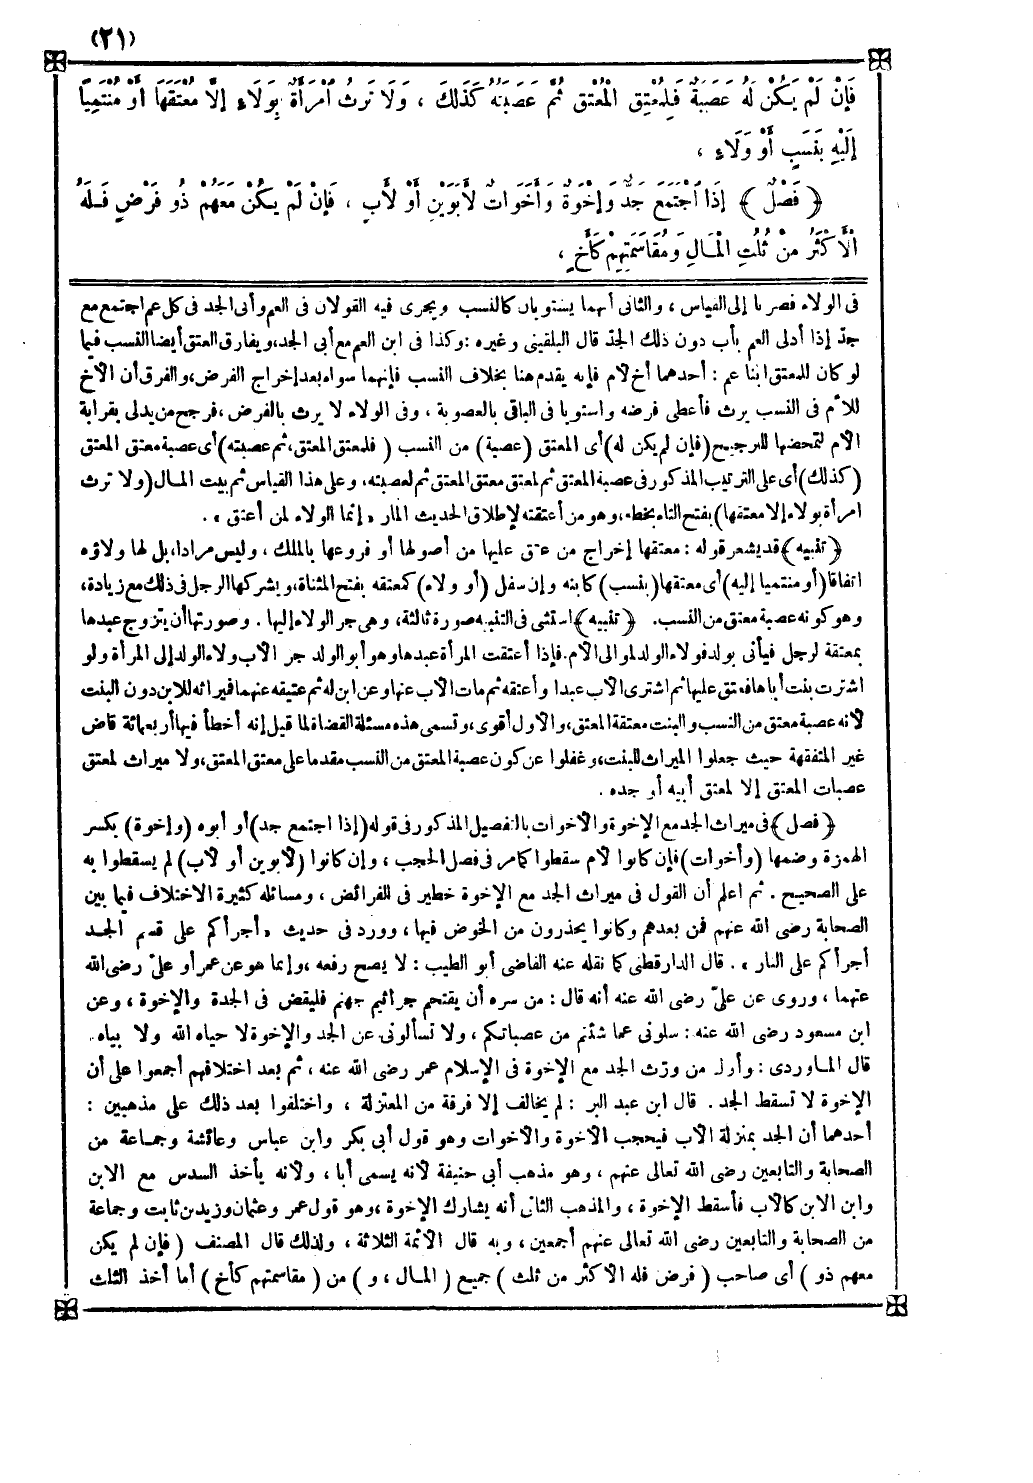 (٢١)
فَإِنْ لَمْ يَكُنْ لَهُ عَصَبَةٌ فَلِمُعْتِقِ الْمُعْتِقِ ثُمَّ عَصَبَتُهُ كَذَلِكَ ، وَلَا تَرِثُ امْرَأَةٌ بِوَلَاءٍ إِلَّا مُعْتَقَهَا أَوْ مُنْتَمِيًا
إِلَيْهِ بِنَسَبٍ أَوْ وَلَاءٍ ،
﴿ فَصْلٌ ﴾ إِذَا اجْتَمَعَ جَدٌّ وَإِخْوَةٌ وَأَخَوَاتٌ لِأَبَوَيْنِ أَوْ لِأَبٍ ، فَإِنْ لَمْ يَكُنْ مَعَهُمْ ذُو فَرْضٍ فَلَهُ
الْأَكْثَرُ مِنْ ثُلُثِ الْمَالِ وَمُقَاسَمَتِهِمْ كَأَخٍ ،
فى الولاء فصرنا إلى القياس ، والثانى أنهما يستويان كالنسب ويجرى فيه القولان فى العم وأبى الجد فى كل عم اجتمع مع
جدّ إذا أدلى العم بأب دون ذلك الجدّ قال البلقينى وغيره : وكذا فى ابن العم مع أبى الجد ، ويفارق العتق أيضا النسب فيما
لو كان للمعتق ابنا عم : أحدهما أخ لأم فإنه يقدم هنا بخلاف النسب فإنهما سواء بعد إخراج الفرض ، والفرق أن الأخ
للأم فى النسب يرث فأعطى فرضه واستويا فى الباقى بالعصوبة ، وفى الولاء لا يرث بالفرض ، فرجح من يدلى بقرابة
الأم لتمحضها للترجيح (فإن لم يكن له) أى المعتق (عصبة) من النسب ( فلمعتق المعتق ، ثم عصبته) أى عصبة معتق المعتق
(كذلك) أى على الترتيب المذكور فى عصبة المعتق ثم لمعتق معتق المعتق ثم لعصبته ، وعلى هذا القياس ثم بيت المال (ولا ترث
امرأة بولاء إلا معتقها) بفتح التاء بخطه ، وهو من أعتقته لإطلاق الحديث المار « إنما الولاء لمن أعتق » .
﴿ تنبيه ﴾ قد يشعر قوله : معتقها إخراج من عتق عليها من أصولها أو فروعها بالملك ، وليس مرادا ، بل لها ولاؤه
اتفاقا (أو منتميا إليه) أى معتقها (بنسب) كابنه وإن سفل (أو ولاء) كمعتقه بفتح المثناة ، ويشركها الرجل فى ذلك مع زيادة ،
وهو كونه عصبة معتق من النسب . ﴿ تنبيه ﴾ استثنى فى التنبيه صورة ثالثة ، وهى جر الولاء إليها . وصورتها أن يتزوج عبدها
بمعتقة لرجل فيأتى بولد فولاء الولد لموالى الأم . فإذا أعتقت المرأة عبدها وهو أبو الولد جر الأب ولاء الولد إلى المرأة ولو
اشترت بنت أباها فعتق عليها ثم اشترى الأب عبدا وأعتقه ثم مات الأب عنها وعن ابن له ثم عتيقه عنهما فميراثه للابن دون البنت
لأنه عصبة معتق من النسب والبنت معتقة المعتق ، والأول أقوى ، وتسمى هذه مسئلة القضاة لما قيل إنه أخطأ فيها أربعمائة قاض
غير المتفقهة حيث جعلوا الميراث للبنت ، وغفلوا عن كون عصبة المعتق من النسب مقدما على معتق المعتق ، ولا ميراث لمعتق
عصبات المعتق إلا لمعتق أبيه أو جده .
﴿ فصل ﴾ فى ميراث الجد مع الإخوة والأخوات بالتفصيل المذكور فى قوله (إذا اجتمع جد) أو أبوه (وإخوة) بكسر
الهمزة وضمها (وأخوات) فإن كانوا لأم سقطوا كما مر فى فصل الحجب ، وإن كانوا (لأبوين أو لأب) لم يسقطوا به
على الصحيح . ثم اعلم أن القول فى ميراث الجد مع الإخوة خطير فى الفرائض ، ومسائله كثيرة الاختلاف فيما بين
الصحابة رضى الله عنهم فمن بعدهم وكانوا يحذرون من الخوض فيها ، وورد فى حديث « أجرأكم على قسم الجد
أجرأكم على النار » . قال الدارقطنى كما نقله عنه القاضى أبو الطيب : لا يصح رفعه ، وإنما هو عن عمر أو علىّ رضى الله
عنهما ، وروى عن علىّ رضى الله عنه أنه قال : من سره أن يقتحم جراثيم جهنم فليقض فى الجدة والإخوة ، وعن
ابن مسعود رضى الله عنه : سلونى عما شئتم من عصباتكم ، ولا تسألونى عن الجد والإخوة لا حياه الله ولا بياه .
قال الماوردى : وأول من ورّث الجد مع الإخوة فى الإسلام عمر رضى الله عنه ، ثم بعد اختلافهم أجمعوا على أن
الإخوة لا تسقط الجد . قال ابن عبد البر : لم يخالف إلا فرقة من المعتزلة ، واختلفوا بعد ذلك على مذهبين :
أحدهما أن الجد بمنزلة الأب فيحجب الأخوة والأخوات وهو قول أبى بكر وابن عباس وعائشة وجماعة من
الصحابة والتابعين رضى الله تعالى عنهم ، وهو مذهب أبى حنيفة لأنه يسمى أبا ، ولأنه يأخذ السدس مع الابن
وابن الابن كالأب فأسقط الإخوة ، والمذهب الثانى أنه يشارك الإخوة ، وهو قول عمر وعثمان وزيد بن ثابت وجماعة
من الصحابة والتابعين رضى الله تعالى عنهم أجمعين ، وبه قال الأئمة الثلاثة ، ولذلك قال المصنف ( فإن لم يكن
معهم ذو ) أى صاحب ( فرض فله الأكثر من ثلث ) جميع ( المال ، و ) من ( مقاسمتهم كأخ ) أما أخذ الثلث